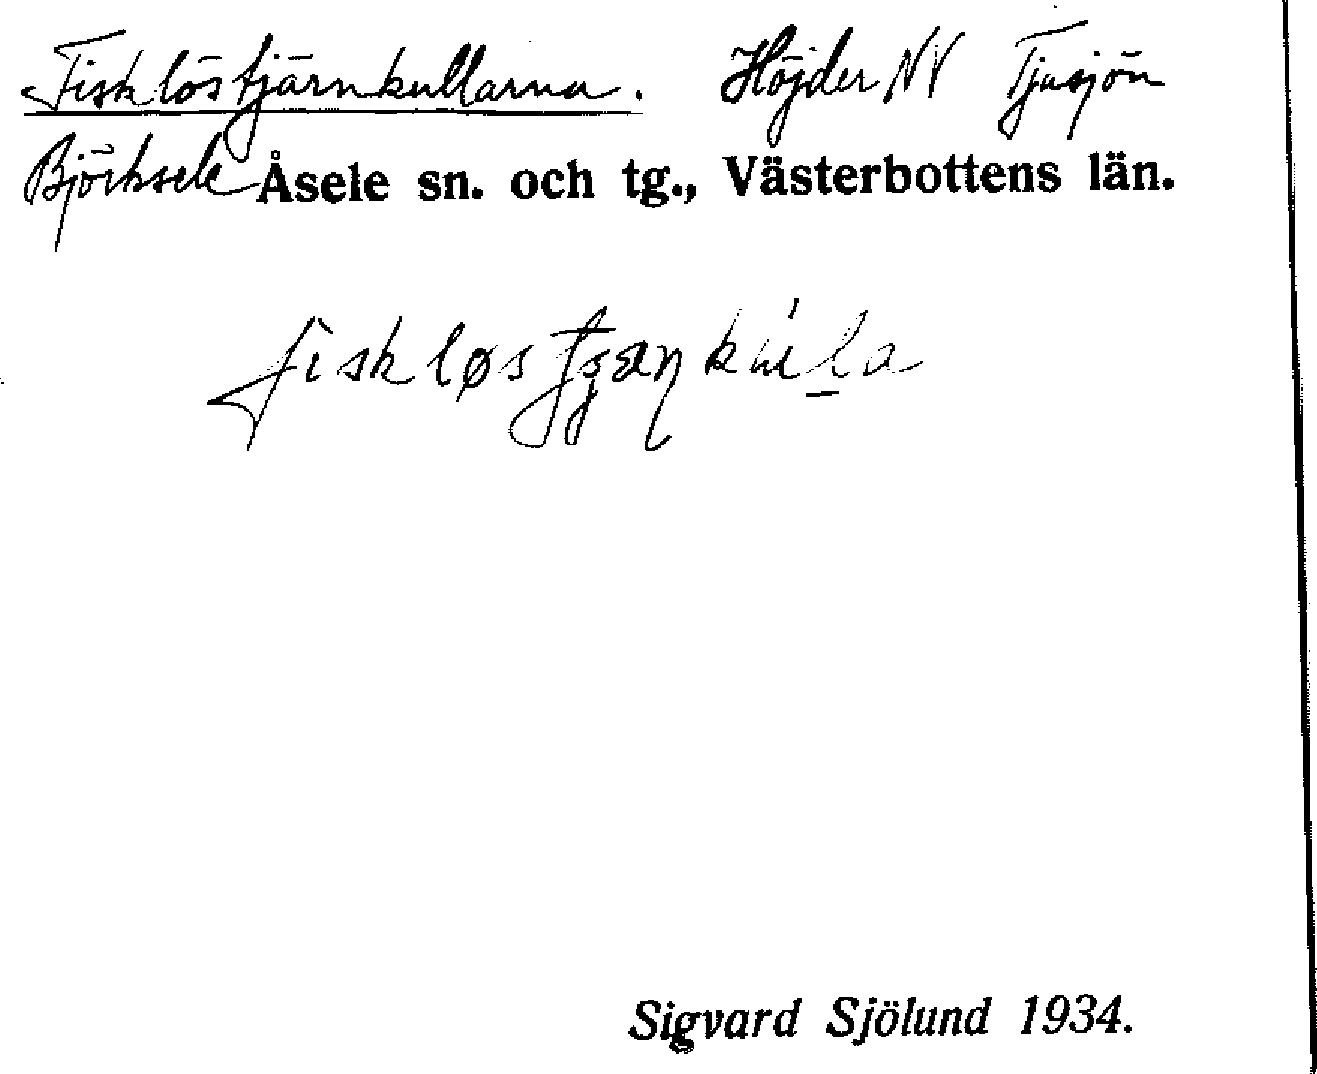 Fisklöstjärnkullarna. Höjder NV Tjusjön
Björksele Åsele sn. och tg., Västerbottens län.
fiskløstjæṇkúla
Sigvard Sjölund 1934.